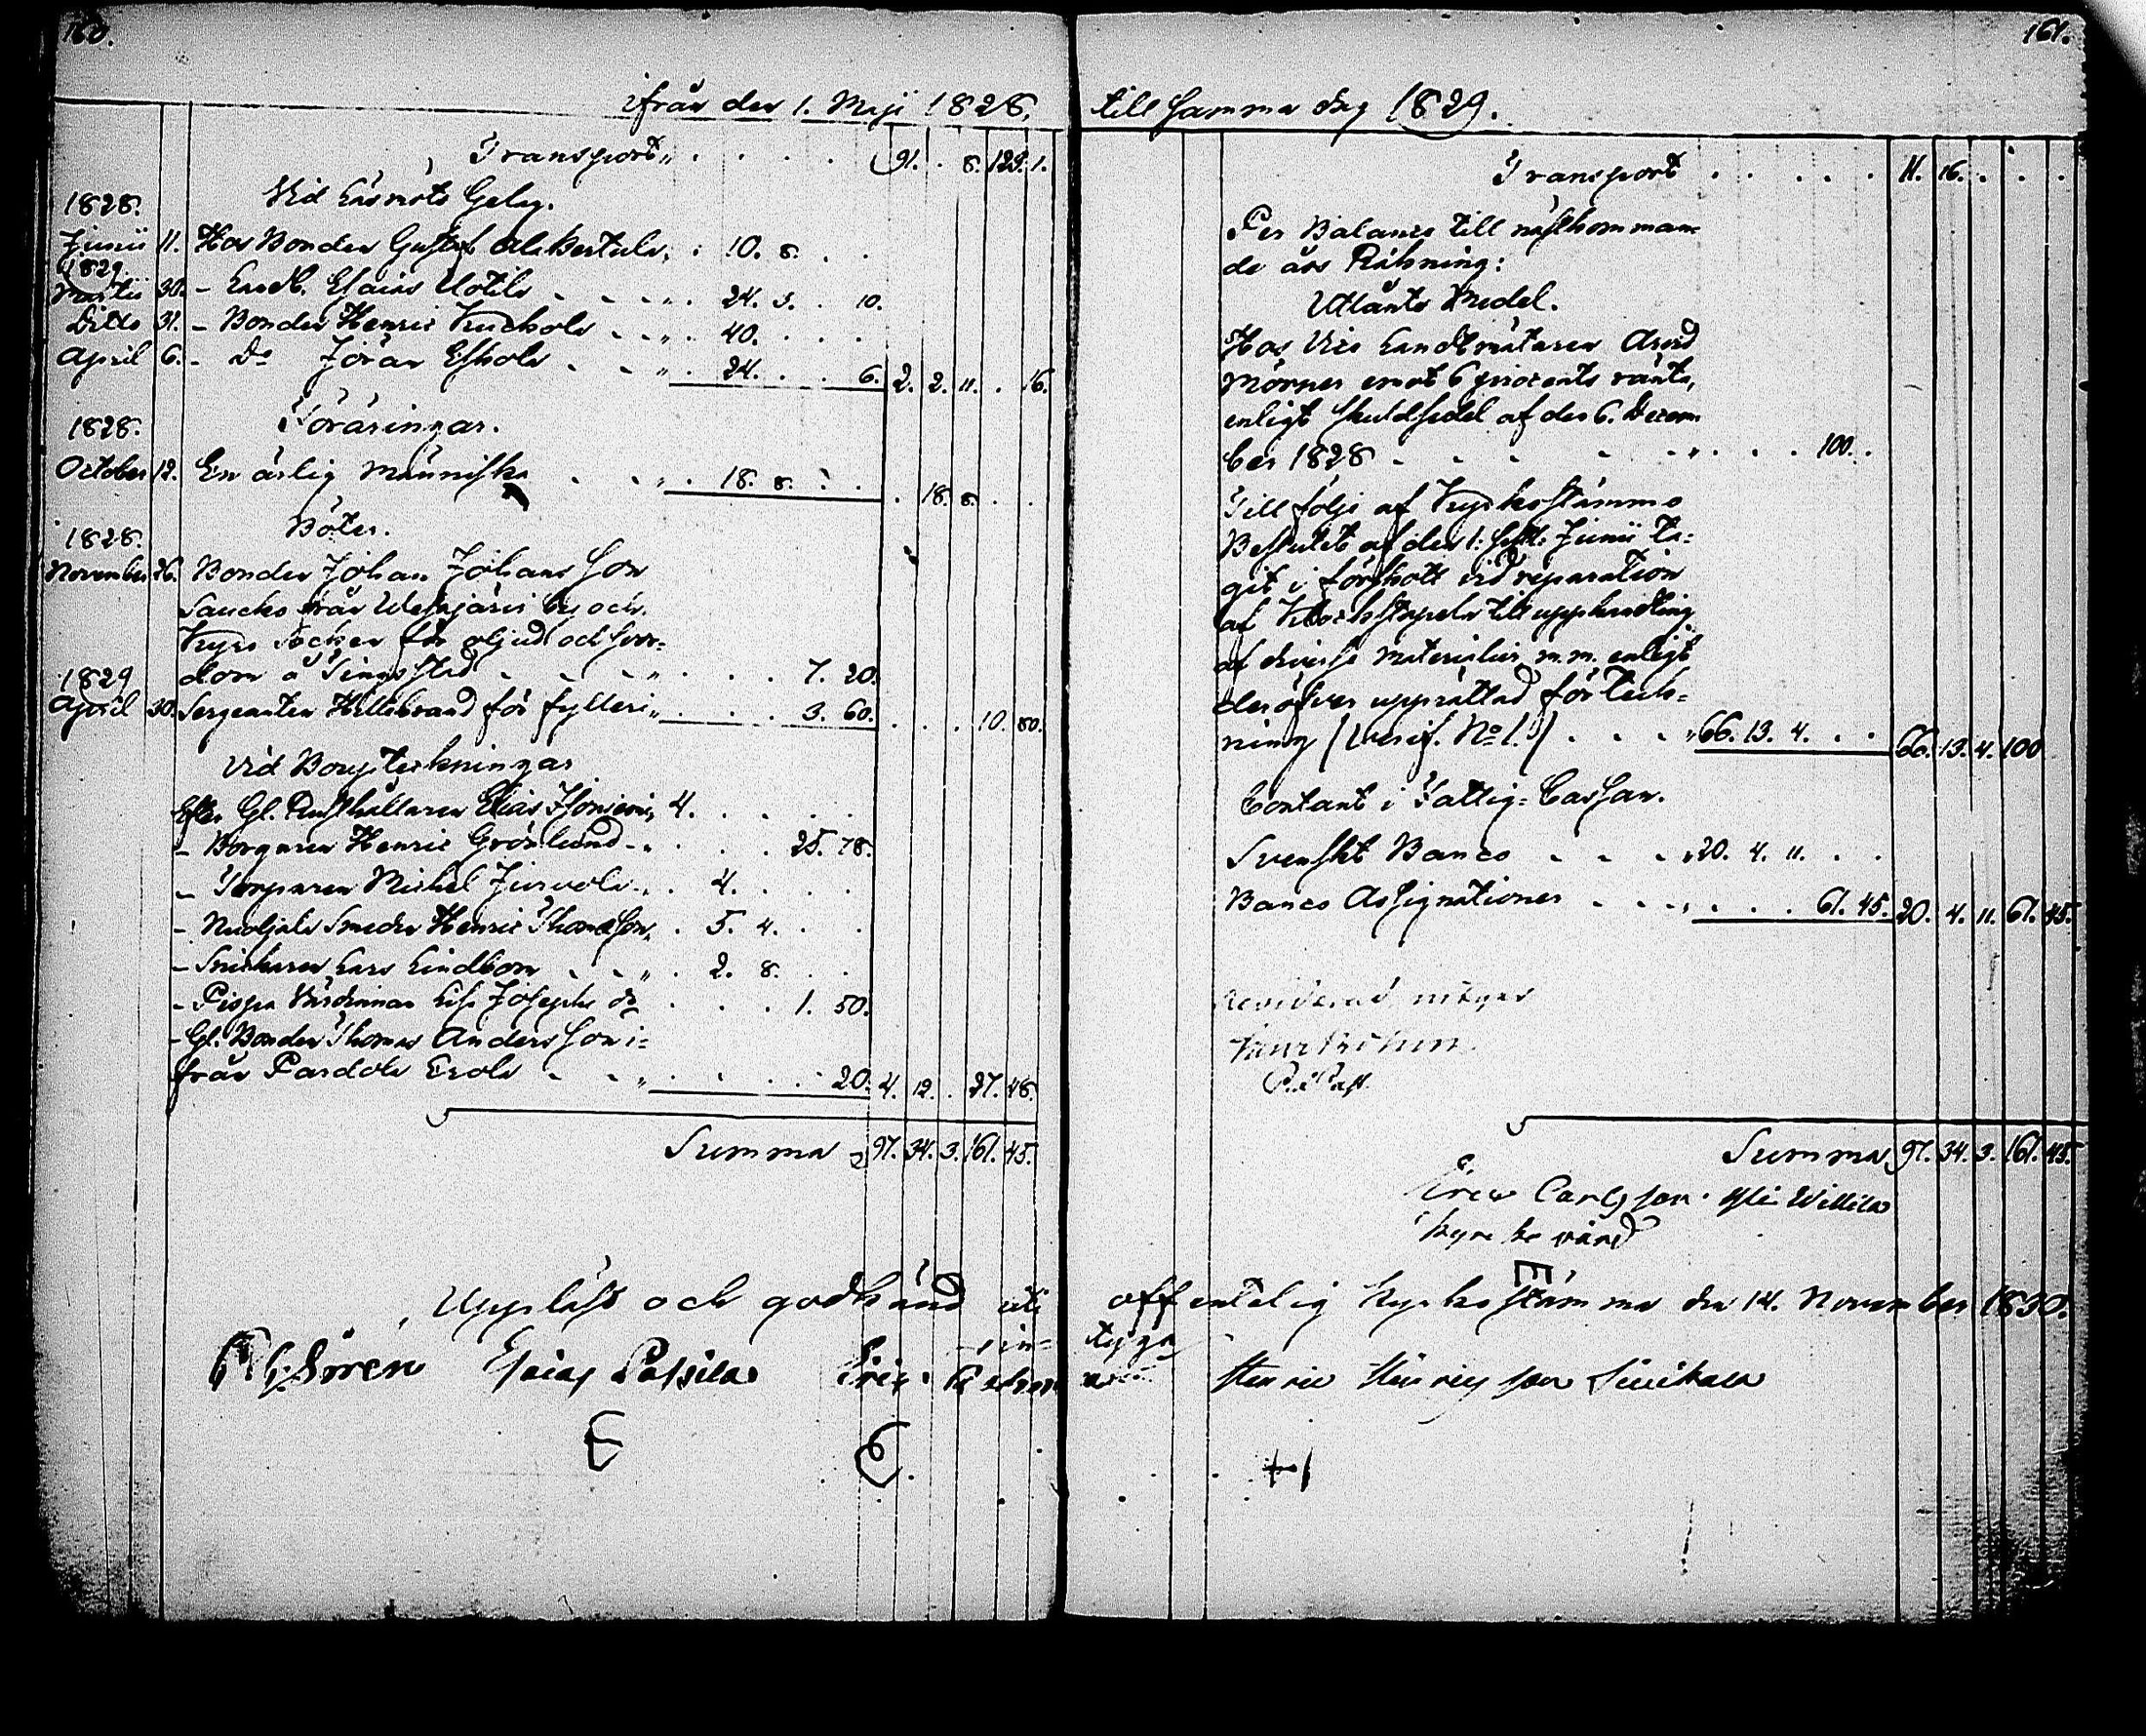 160.
ifrån den 1. Maji 1828.
Transport " . . . . 91. . 8. 129. 1.
1828. Vid Läsmöts Gelag.
Junii 11. Hos Bonden Gustaf Ala Bertula " . 10. 8. . .
1829.
Martii 30. - Landb. Esaias Uotila . . " . 24. 3. . 10.
Ditto 31. - Bonden Henric Kuckola . . " . 40. . . .
April 6. - Do Jöran Eskola . . " . 24. . . 6. 2. 2. 11. . 16.
1828. Föräringar.
October 12. En ärlig Människa . . " . 18. 8. . . . 18. 8. . .
1828. Böter.
November 26. Bonden Johan Johansson
Saucko från Wesajärvi by och
Kyro Socken för oljud och svor-
dom å Tingsstad . . . " . . . 7. 20.
1829
April 30. Sergeanten Hillebrand för fylleri " . . . 3. 60. . . . 10. 80.
Vid Bouptekningar
Efter Gl. Rusthållaren Elias Isoniemi " 4. . . . .
- Borgaren Henric Grönlund - " . . . 25. 78.
- Torparen Michel Jussola . " . 4. . . .
- Nuoljala Smeden Henric Thomasson " . 5. 4. . .
- Snickaren Lars Lindbom . . " . 2. 8. . .
- Pispa Värdinnan Lisa Josephs dr . . . 1. 50.
- Gl. Bonden Thomas Andersson i-
från Pardola Erola . . " . . . . 20. 4. 12. . 27. 48.
Summa 97. 34. 3. 161. 45.
Uppläst och godkänd uti
Esaias Passila Eric
161.
till samma dag 1829.
Transport . . . . . 11. 16. . . .
Per Balance till nästkomman-
de års Räkning:
Utlånte Medel.
Hos Vice Landtmätaren Arvid
Mörner emot 6 procents ränta,
enligt skuldsedel af den 6. Decem
ber 1828 . . . . . " . . . 100. .
Till följe af Kyrkostämmo
Beslutet af den 1. sistl. Junii ta-
git i förskott vid reparation
af Klockstapeln till upphandling
af diverse Materialier m.m. enligt
deröfver upprättad förtek-
ning (Verif. No 1.) . . . " 66. 13. 4. . . 66. 13. 4. 100
Contant i Fattig-Cassan.
Svenskt Banco . . . " 20. 4. 11. . .
Banco Assignationer . . . " . . . 61. 45. 20. 4. 11. 61. 45.
Summa 97. 34. 3. 161. 45.
Eric Carlsson Yli Willila
Kyrko värd
offentelig Kyrko stämma den 14. November 1830.
Henric Hinricsson